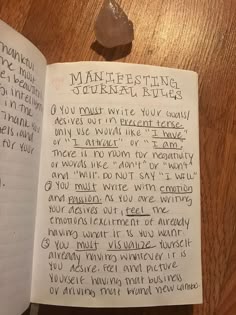 hankful
I'm
beautiful
in the
Thank
MANIFESTING
JOURNAL RULES
① YOU MUST WRITE YOUR GOALS/
DESIRES OUT IN PRESENT TENSE.
ONLY USE WORDS LIKE "I HAVE"
OR "I ATTRACT" OR "I AM".
THERE IS NO ROOM FOR NEGATIVITY
OR WORDS LIKE "DON'T" OR "WON'T"
AND "WILL". DO NOT SAY "I WILL"
② YOU MUST WRITE WITH EMOTION
AND PASSION. AS YOU ARE WRITING
YOUR DESIRES OUT, FEEL THE
EMOTIONS/EXCITMENT OF ALREADY
HAVING WHAT IT IS YOU WANT.
③ YOU MUST VISUALIZE YOURSELF
ALREADY HAVING WHATEVER IT IS
YOU DESIRE. FEEL AND PICTURE
YOURSELF HAVING THAT BUSINESS
OR DRIVING THAT BRAND NEW LAMBO.